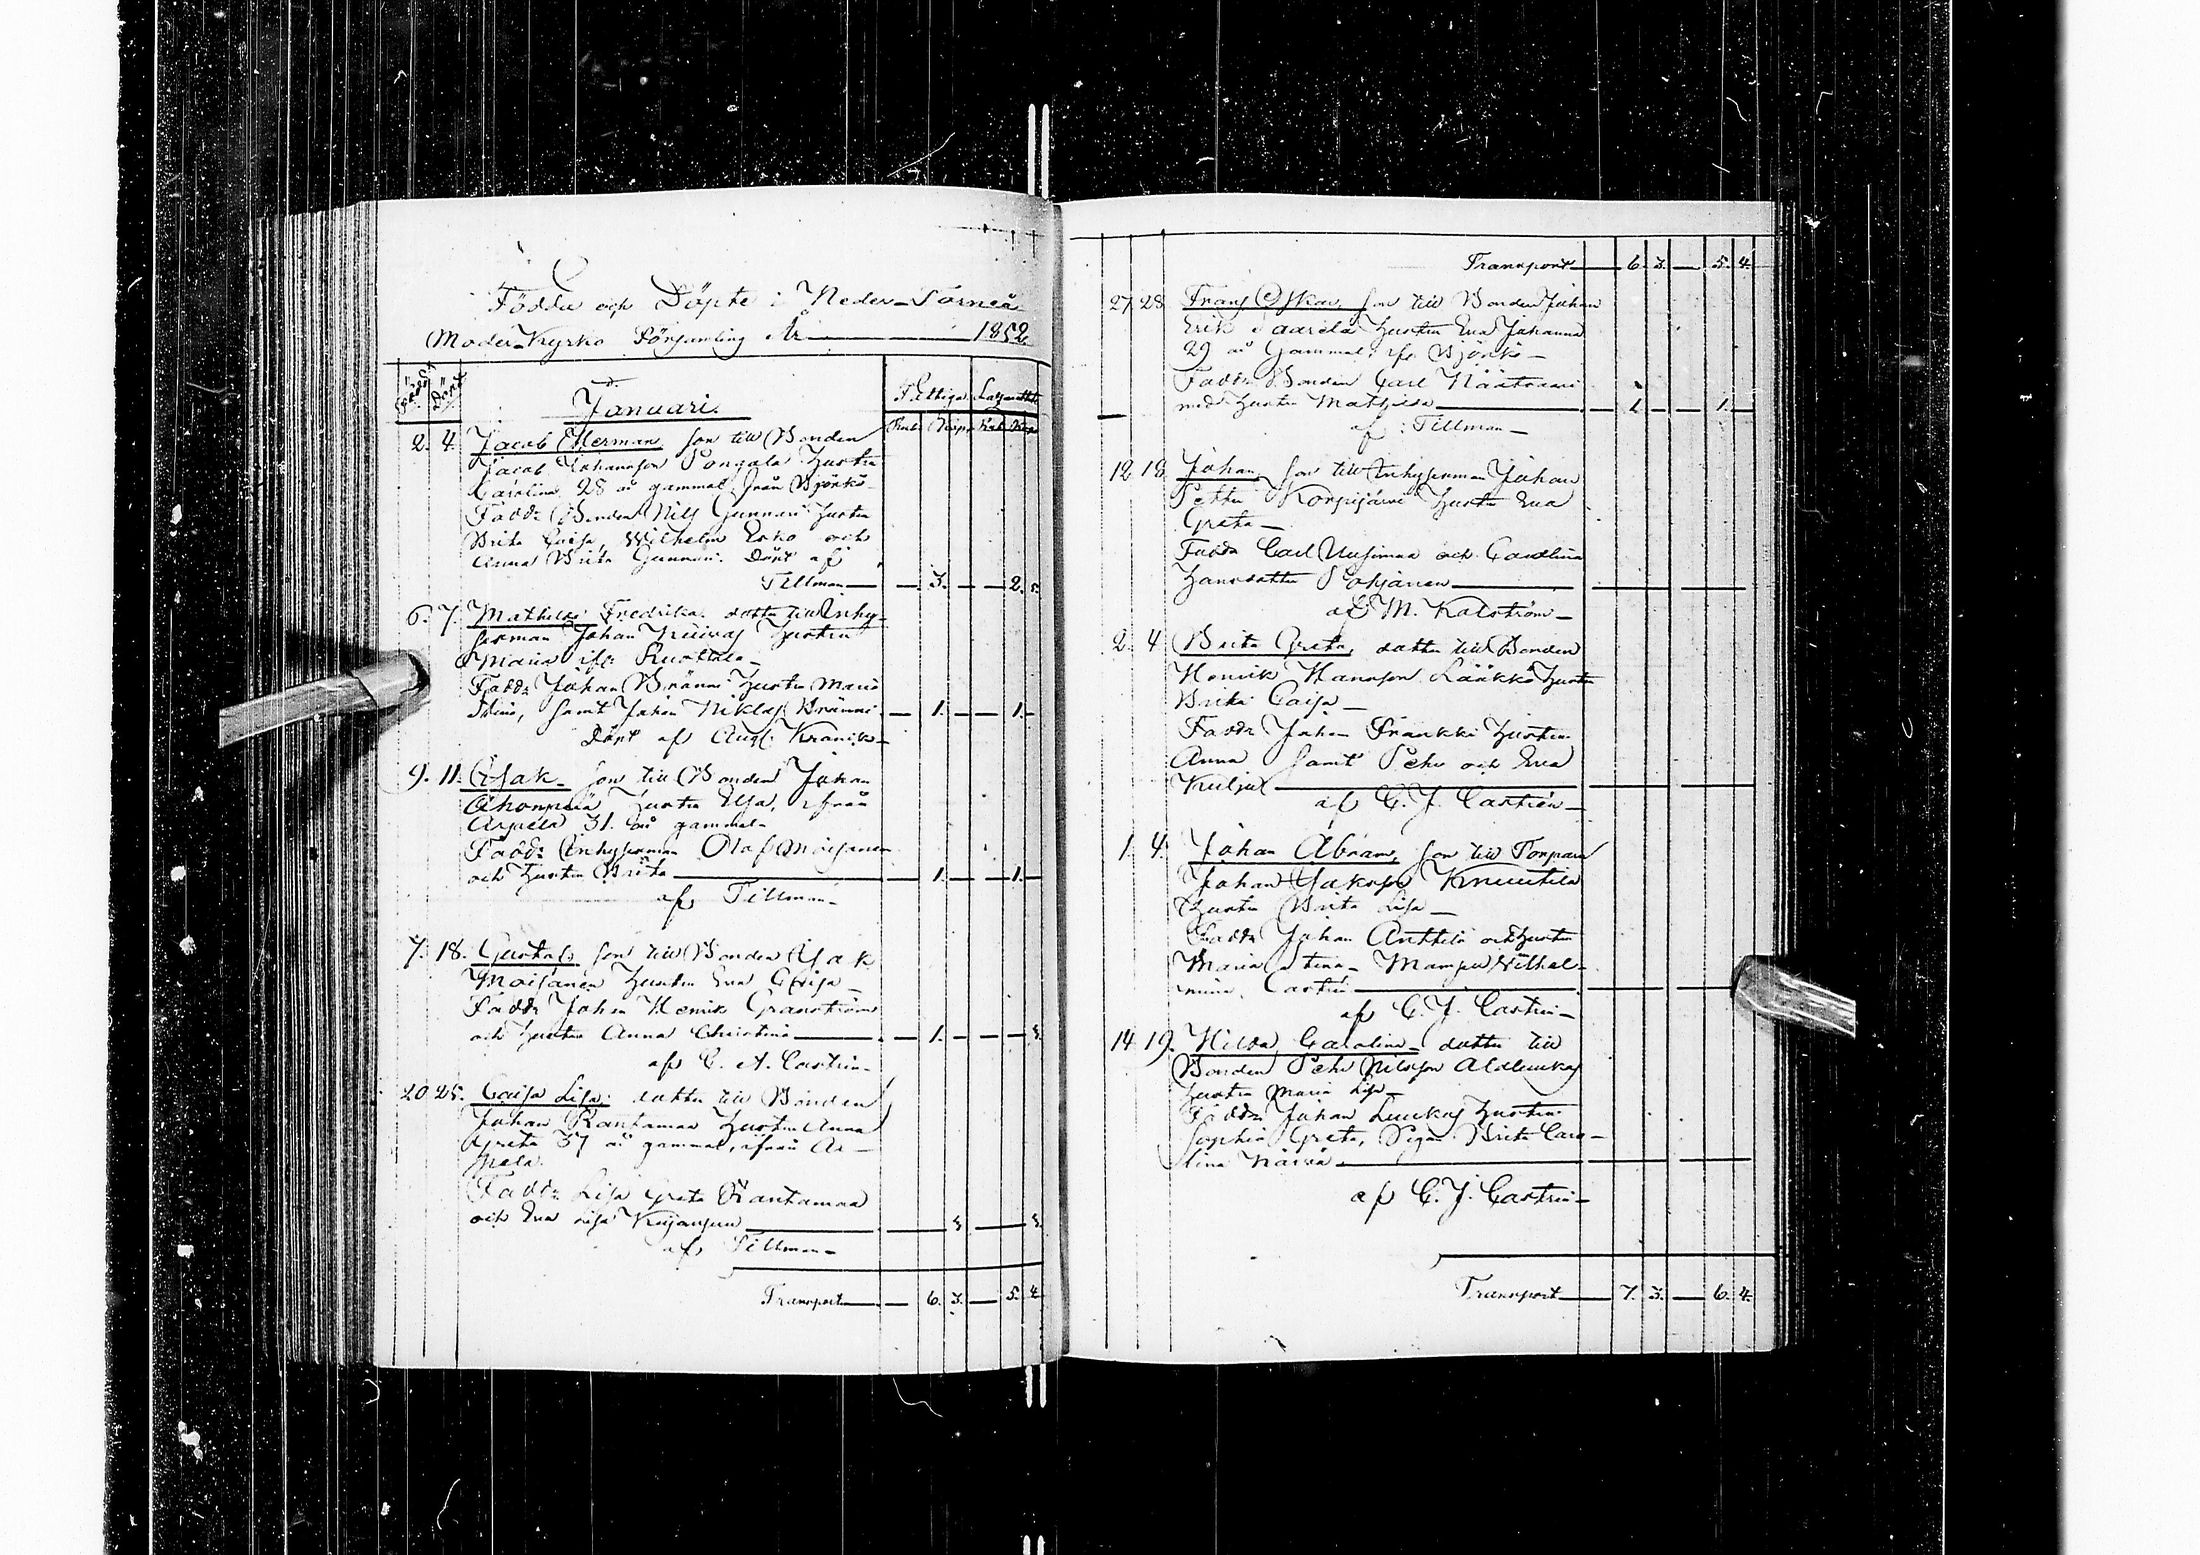 Födde och Döpte i Neder-Torneå
Moder-Kyrko Församling År 1852
Född Döpt
Januari
Fattiga
Rub. Kop. Rub. Kop.
2. 4. Jacob Herman, son till Bonden
Jacob Johansson hustru
Carolina 28 år gammal, från Björkö
Fadd: Bonden Nils Gunnari hustru
Brita Caisa, Wilhelm Erko och
Anna Brita Gunnari. Döpt af
Tillman — 3. — 2. 5.
6. 7. Mathilda Fredrika. dotter till Inhy-
sesman Johan hustru
Maria ifr. Ruottala
Fadd: Johan Bränni hustru Maria
Stina, samt Johan Niklas Bränni — 1. — 1.
Döpt af Kranck
9. 11. Isak son till Bonden Johan
hustru Elsa, ifrån
Arpela 31. år gammal
Fadd: Inhysesman Olof Moisanen
och hustru Brita — 1. — 1.
af Tillman
7. 18. Gustaf, son till Bonden Isak
Moisanen hustru Eva Caisa
Fadd: Johan Henrik Granström
och hustru Anna Christina — 1. —
af C. A. Castrén
20 25. Caisa Lisa: dotter till Bonden
Johan Rantamaa hustru Anna
Greta 37 år gammal, ifrån Ar-
pela.
Fadd: Lisa Greta Rantamaa
och Eva Lisa
af Tillman
Transport — 6. 3. — 5. 4.
Transport — 6. 3. — 5. 4.
27 28 Frans Oskar, son till Bonden Johan
Erik Saarela hustru Eva Johanna
29 år Gammal, ifr Björkö
Fadd: Bonden Carl
med hustru Mathilda — 1. — 1.
af Tillman
12 18 Johan, son till Inhysesman Johan
Petter Korpijärvi hustru Eva
Greta
Fadd: Carl Uusimaa och Carolina
Hansdotter Pohjanen
af M. Kalström
2. 4 Brita Greta, dotter till Bonden
Henrik Hansson Lääkkö hustru
Brita Caisa
Fadd: Johan Fränkki hustru
Anna samt Pehr och Eva
Kuljul
af C. J. Castrén
1. 4. Johan Abram, son till Torpare
Johan Jakobs. Knuutila
hustru Brita Lisa
Fadd: Johan Anttila och hustru
Maria Stina Mampsel Wilhel-
mina Castrén
af C. J. Castrén
14 19. Hilda Carolina dotter till
Bonden Pehr Nilsson Alaluukas
hustru Maria Lisa
Fadd: Johan Luukas hustru
Sophia Greta, Pigan Brita Caro-
lina
af C. J. Castrén
Transport — 7. 3. — 6. 4.